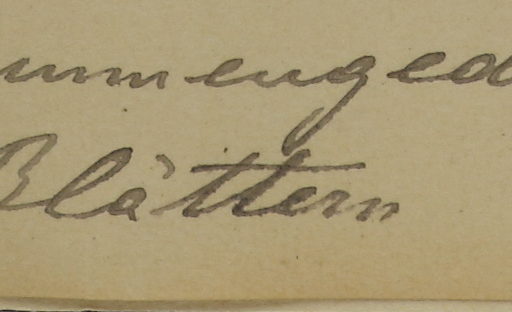 ummenged
Blättern